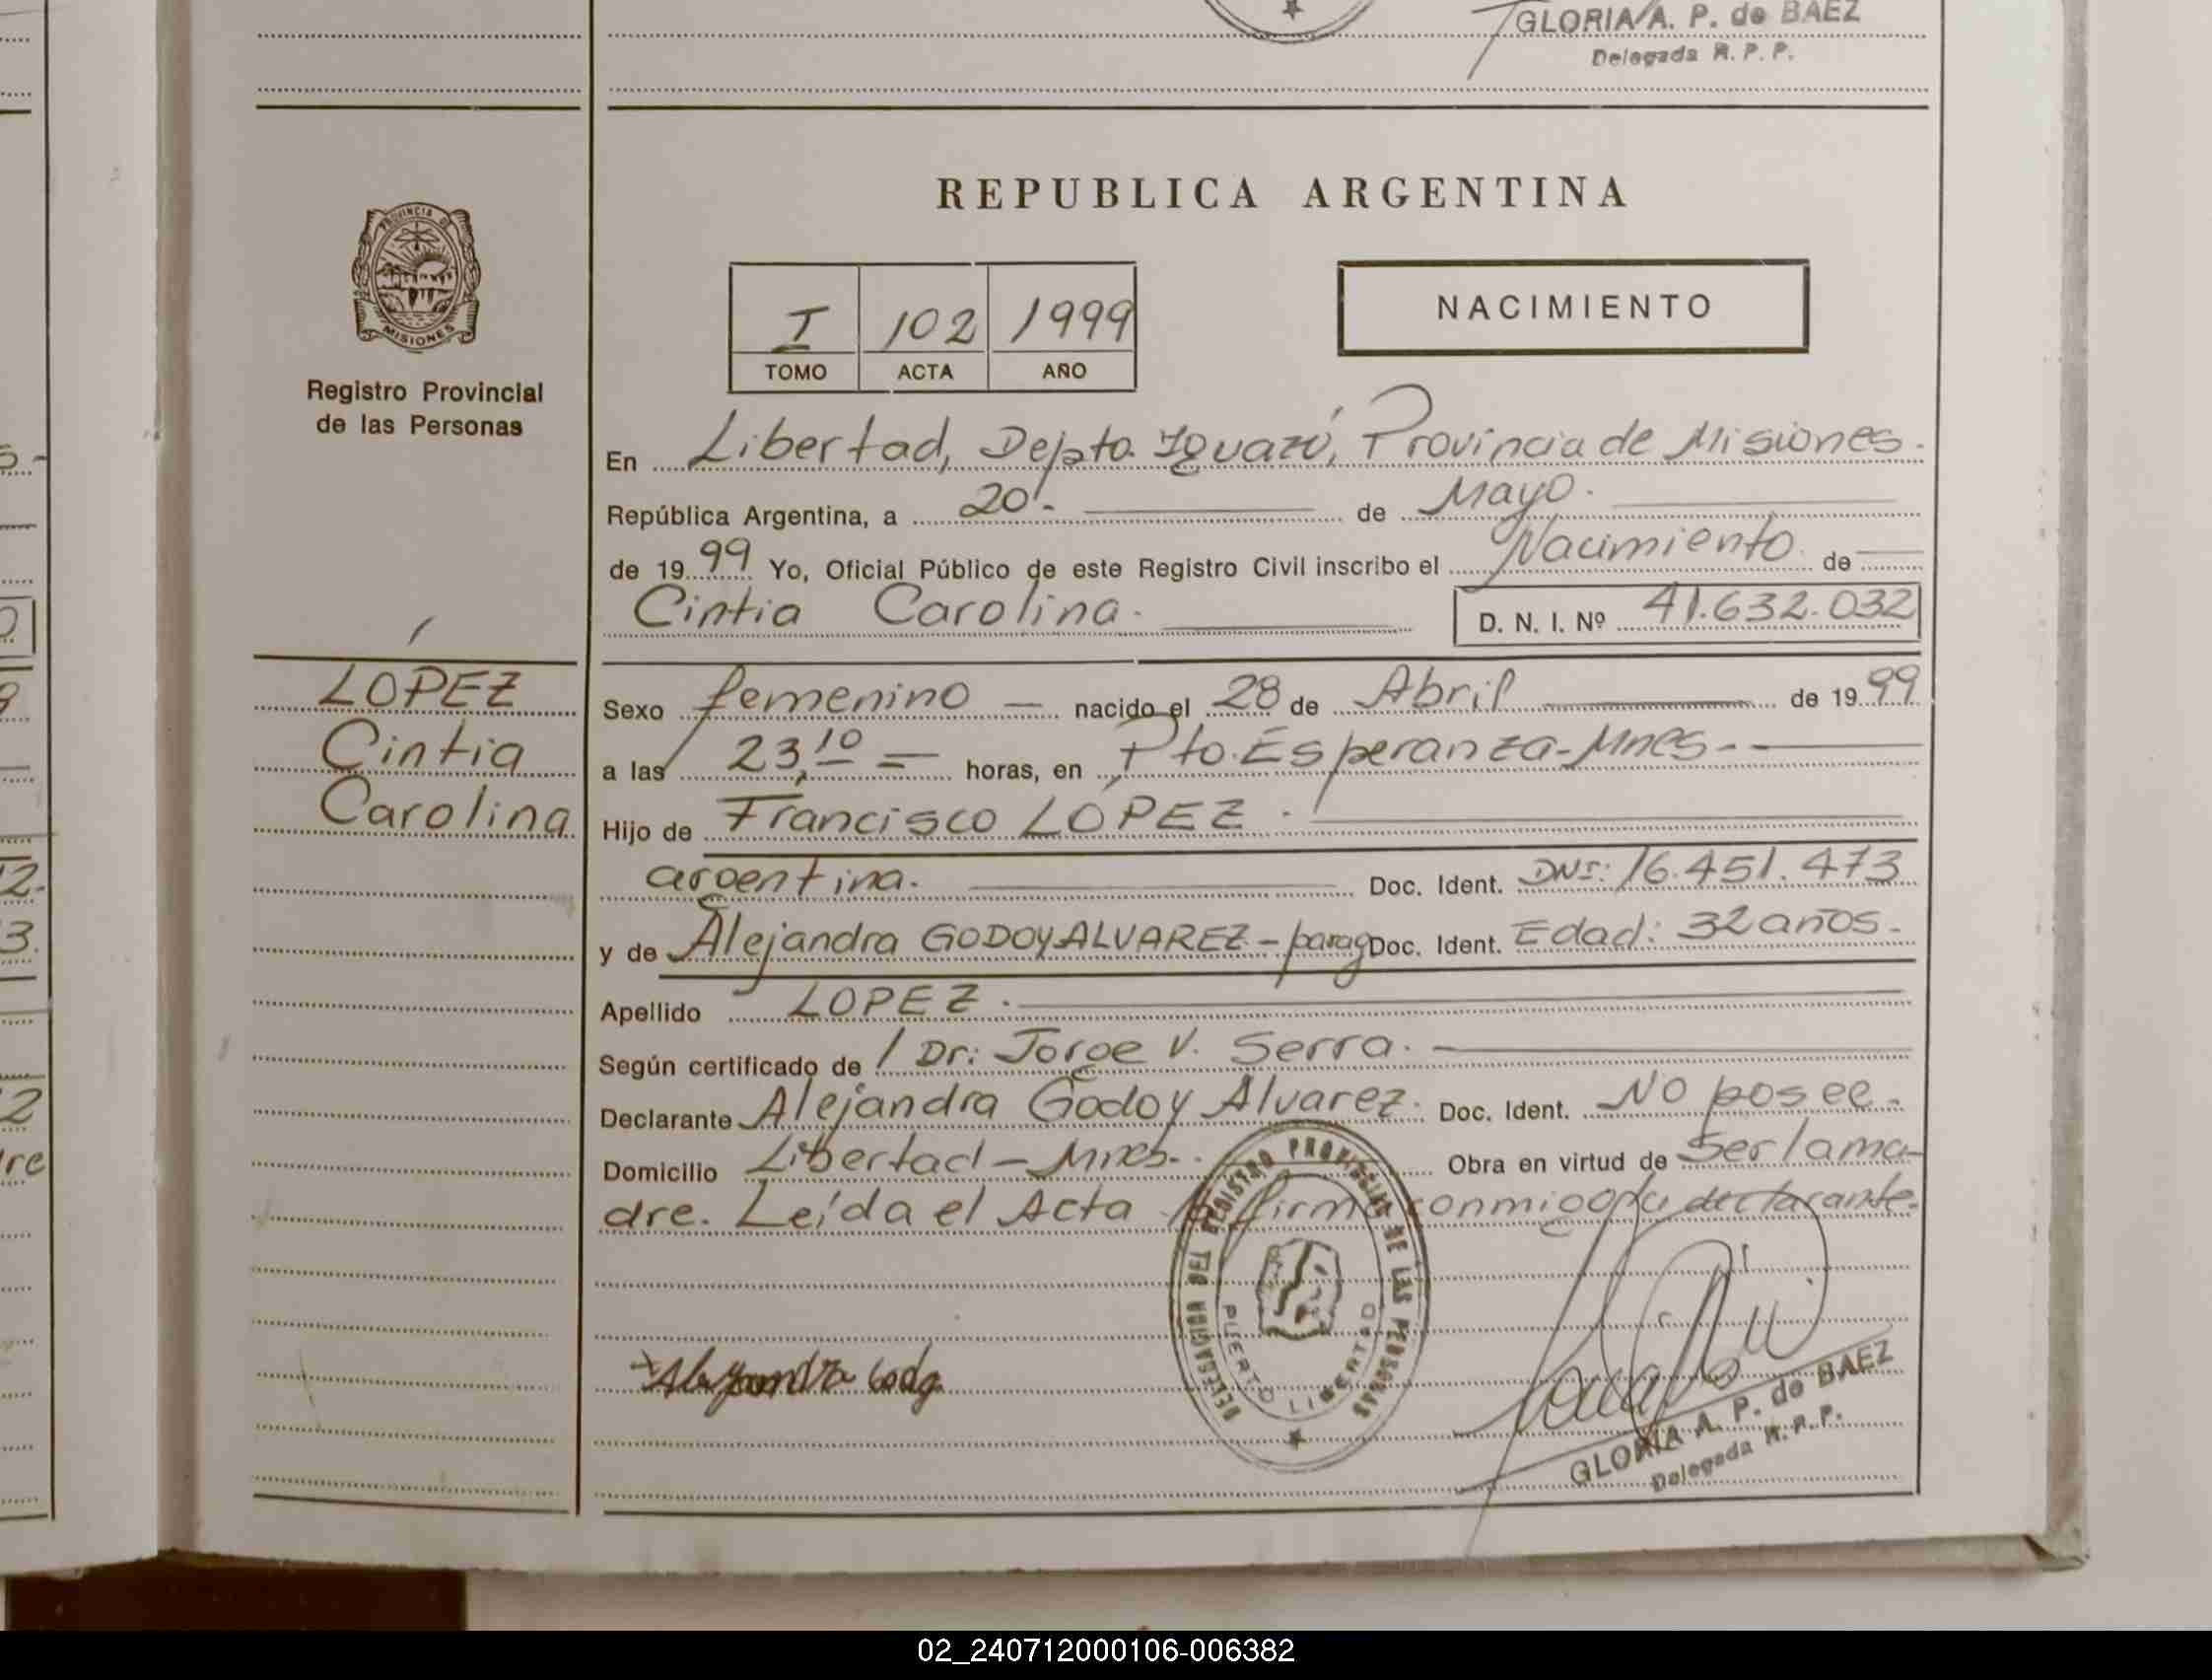 GLORIA A. P. de BAEZ
Delegada R. P. P.
PROVINCIA DE
MISIONES
Registro Provincial
de las Personas
REPUBLICA ARGENTINA
I 102 1999
TOMO ACTA AÑO
NACIMIENTO
En Libertad, Depto. Iguazú, Provincia de Misiones.
República Argentina, a 20.- de Mayo.
de 1999 Yo, Oficial Público de este Registro Civil inscribo el Nacimiento de
Cintia Carolina.
D. N. I. Nº 41.632.032
LOPEZ
Cintia
Carolina
Sexo femenino — nacido el 28 de Abril de 1999
a las 23,10 = horas, en Pto. Esperanza-Mnes-
Hijo de Francisco LOPEZ.
argentina. Doc. Ident. DNI: 16.451.473
y de Alejandra GODOY ALVAREZ - parag Doc. Ident. Edad: 32 años.
Apellido LOPEZ.
Según certificado de Dr: Jorge V. Serra.
Declarante Alejandra Godoy Alvarez. Doc. Ident. No posee.
Domicilio Libertad - Mnes. Obra en virtud de Ser la ma-
dre. Leída el Acta la firma conmigo la declarante.
DELEGACION DEL REGISTRO PROVINCIAL DE LAS PERSONAS
PUERTO LIBERTAD
Alejandra Godoy
GLORIA A. P. de BAEZ
Delegada R. P. P.
02_240712000106-006382